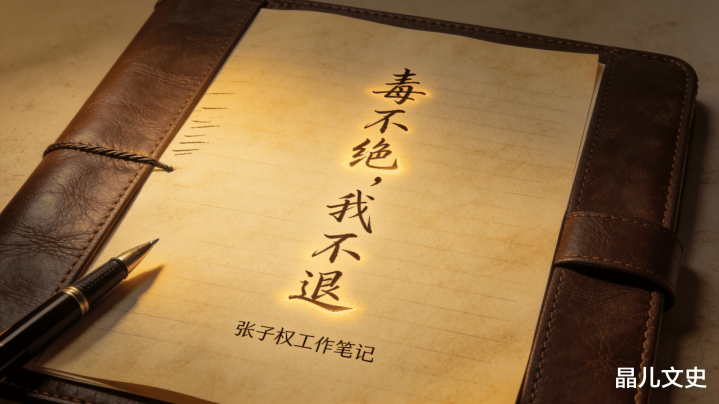 毒不绝，我不退
张子权工作笔记
晶儿文史